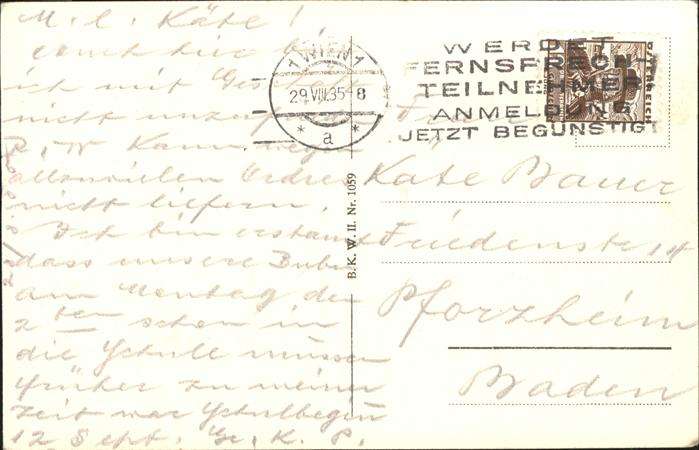 M. l. Käte!
auch hier bin
ich mit
nicht
P. W. Kann wegen
allzuvielen Ordres
nicht liefern.
Ich bin erstaunt
dass unsere Buben
am Montag den
2ten schon in
die Schule müssen
früher zu meiner
Zeit war Schulbeginn
12 Sept. Gr. K. P.
1 WIEN 1
29.VIII.35-8
* a *
WERDET
FERNSPRECH-
TEILNEHMER
ANMELDUNG
JETZT BEGÜNSTIGT
ÖSTERREICH
B. K. W. II. Nr. 1059
Käte Bauer
Friedenstr.
Pforzheim
Baden